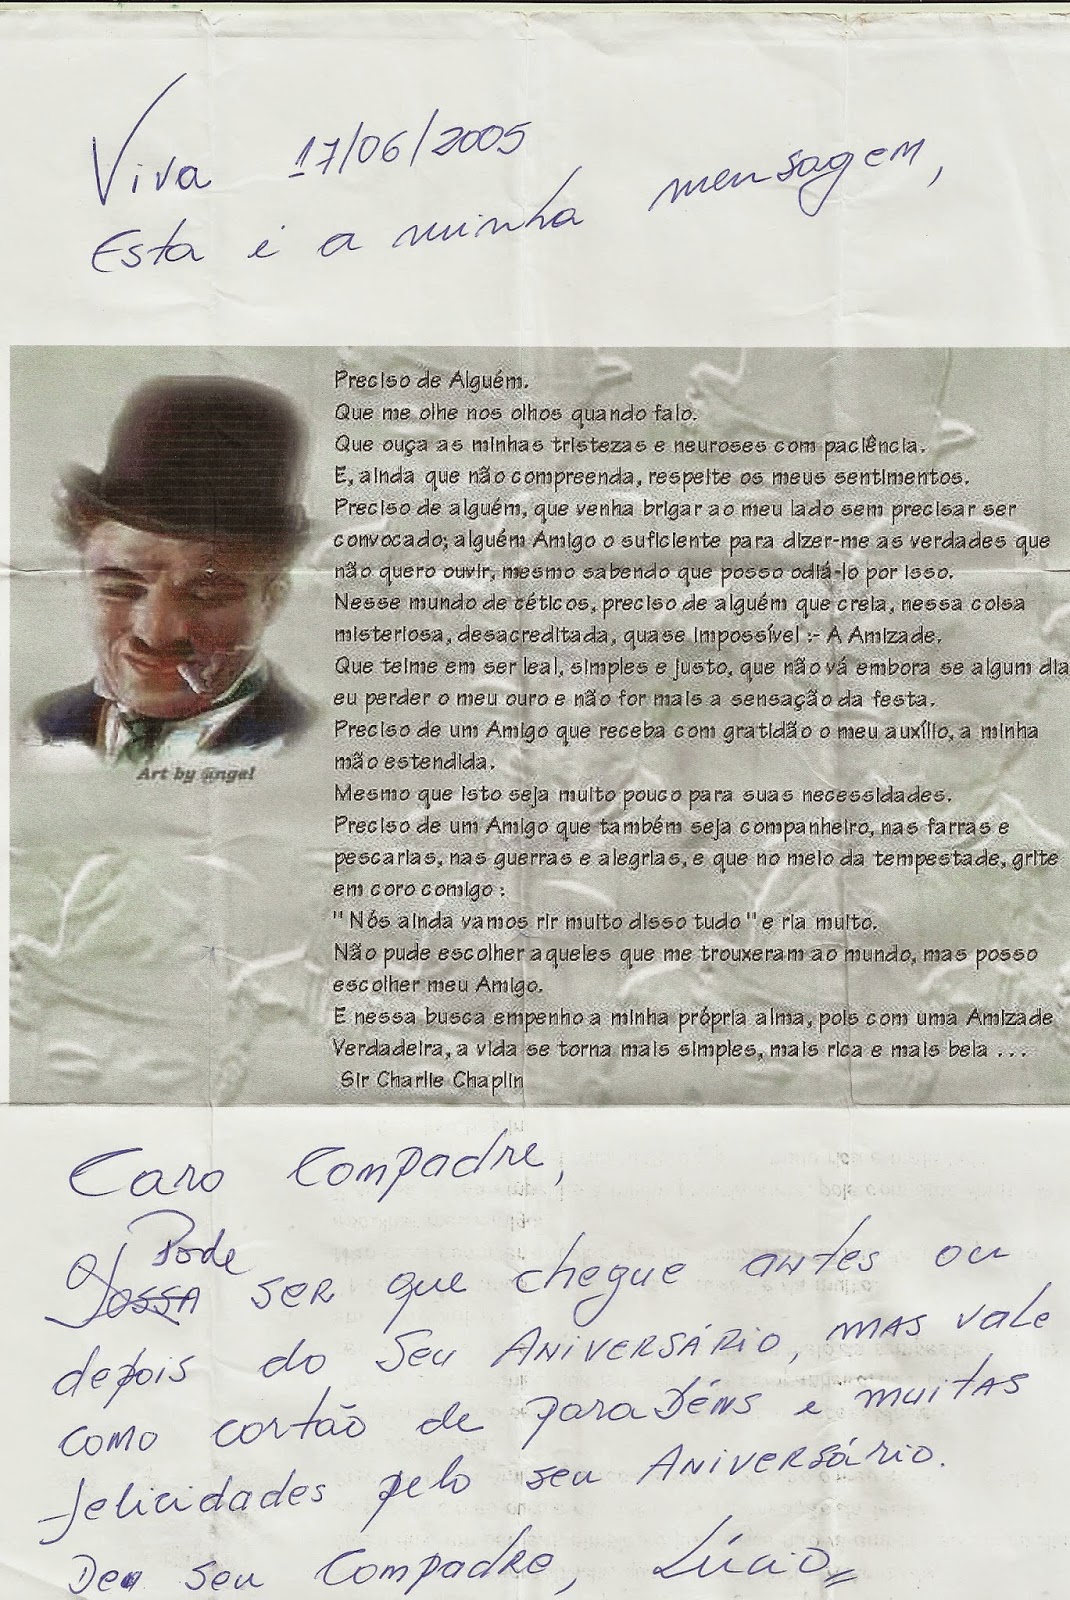 Viva 17/06/2005
Esta é a minha mensagem,
Preciso de Alguém.
Que me olhe nos olhos quando falo.
Que ouça as minhas tristezas e neuroses com paciência.
E, ainda que não compreenda, respeite os meus sentimentos.
Preciso de alguém, que venha brigar ao meu lado sem precisar ser
convocado; alguém Amigo o suficiente para dizer-me as verdades que
não quero ouvir, mesmo sabendo que posso odiá-lo por isso.
Nesse mundo de céticos, preciso de alguém que creia, nessa coisa
misteriosa, desacreditada, quase impossível :- A Amizade.
Que teime em ser leal, simples e justo, que não vá embora se algum dia
eu perder o meu ouro e não for mais a sensação da festa.
Preciso de um Amigo que receba com gratidão o meu auxílio, a minha
mão estendida.
Mesmo que isto seja muito pouco para suas necessidades.
Preciso de um Amigo que também seja companheiro, nas farras e
pescarias, nas guerras e alegrias, e que no meio da tempestade, grite
em coro comigo :
" Nós ainda vamos rir muito disso tudo " e ria muito.
Não pude escolher aqueles que me trouxeram ao mundo, mas posso
escolher meu Amigo.
E nessa busca empenho a minha própria alma, pois com uma Amizade
Verdadeira, a vida se torna mais simples, mais rica e mais bela ...
Sir Charlie Chaplin
Art by @ngel
Caro Compadre,
Pode
ser que chegue antes ou
depois do Seu Aniversário, mas vale
como cartão de parabéns e muitas
felicidades pelo seu Aniversário.
Deo seu Compadre, Lúcio